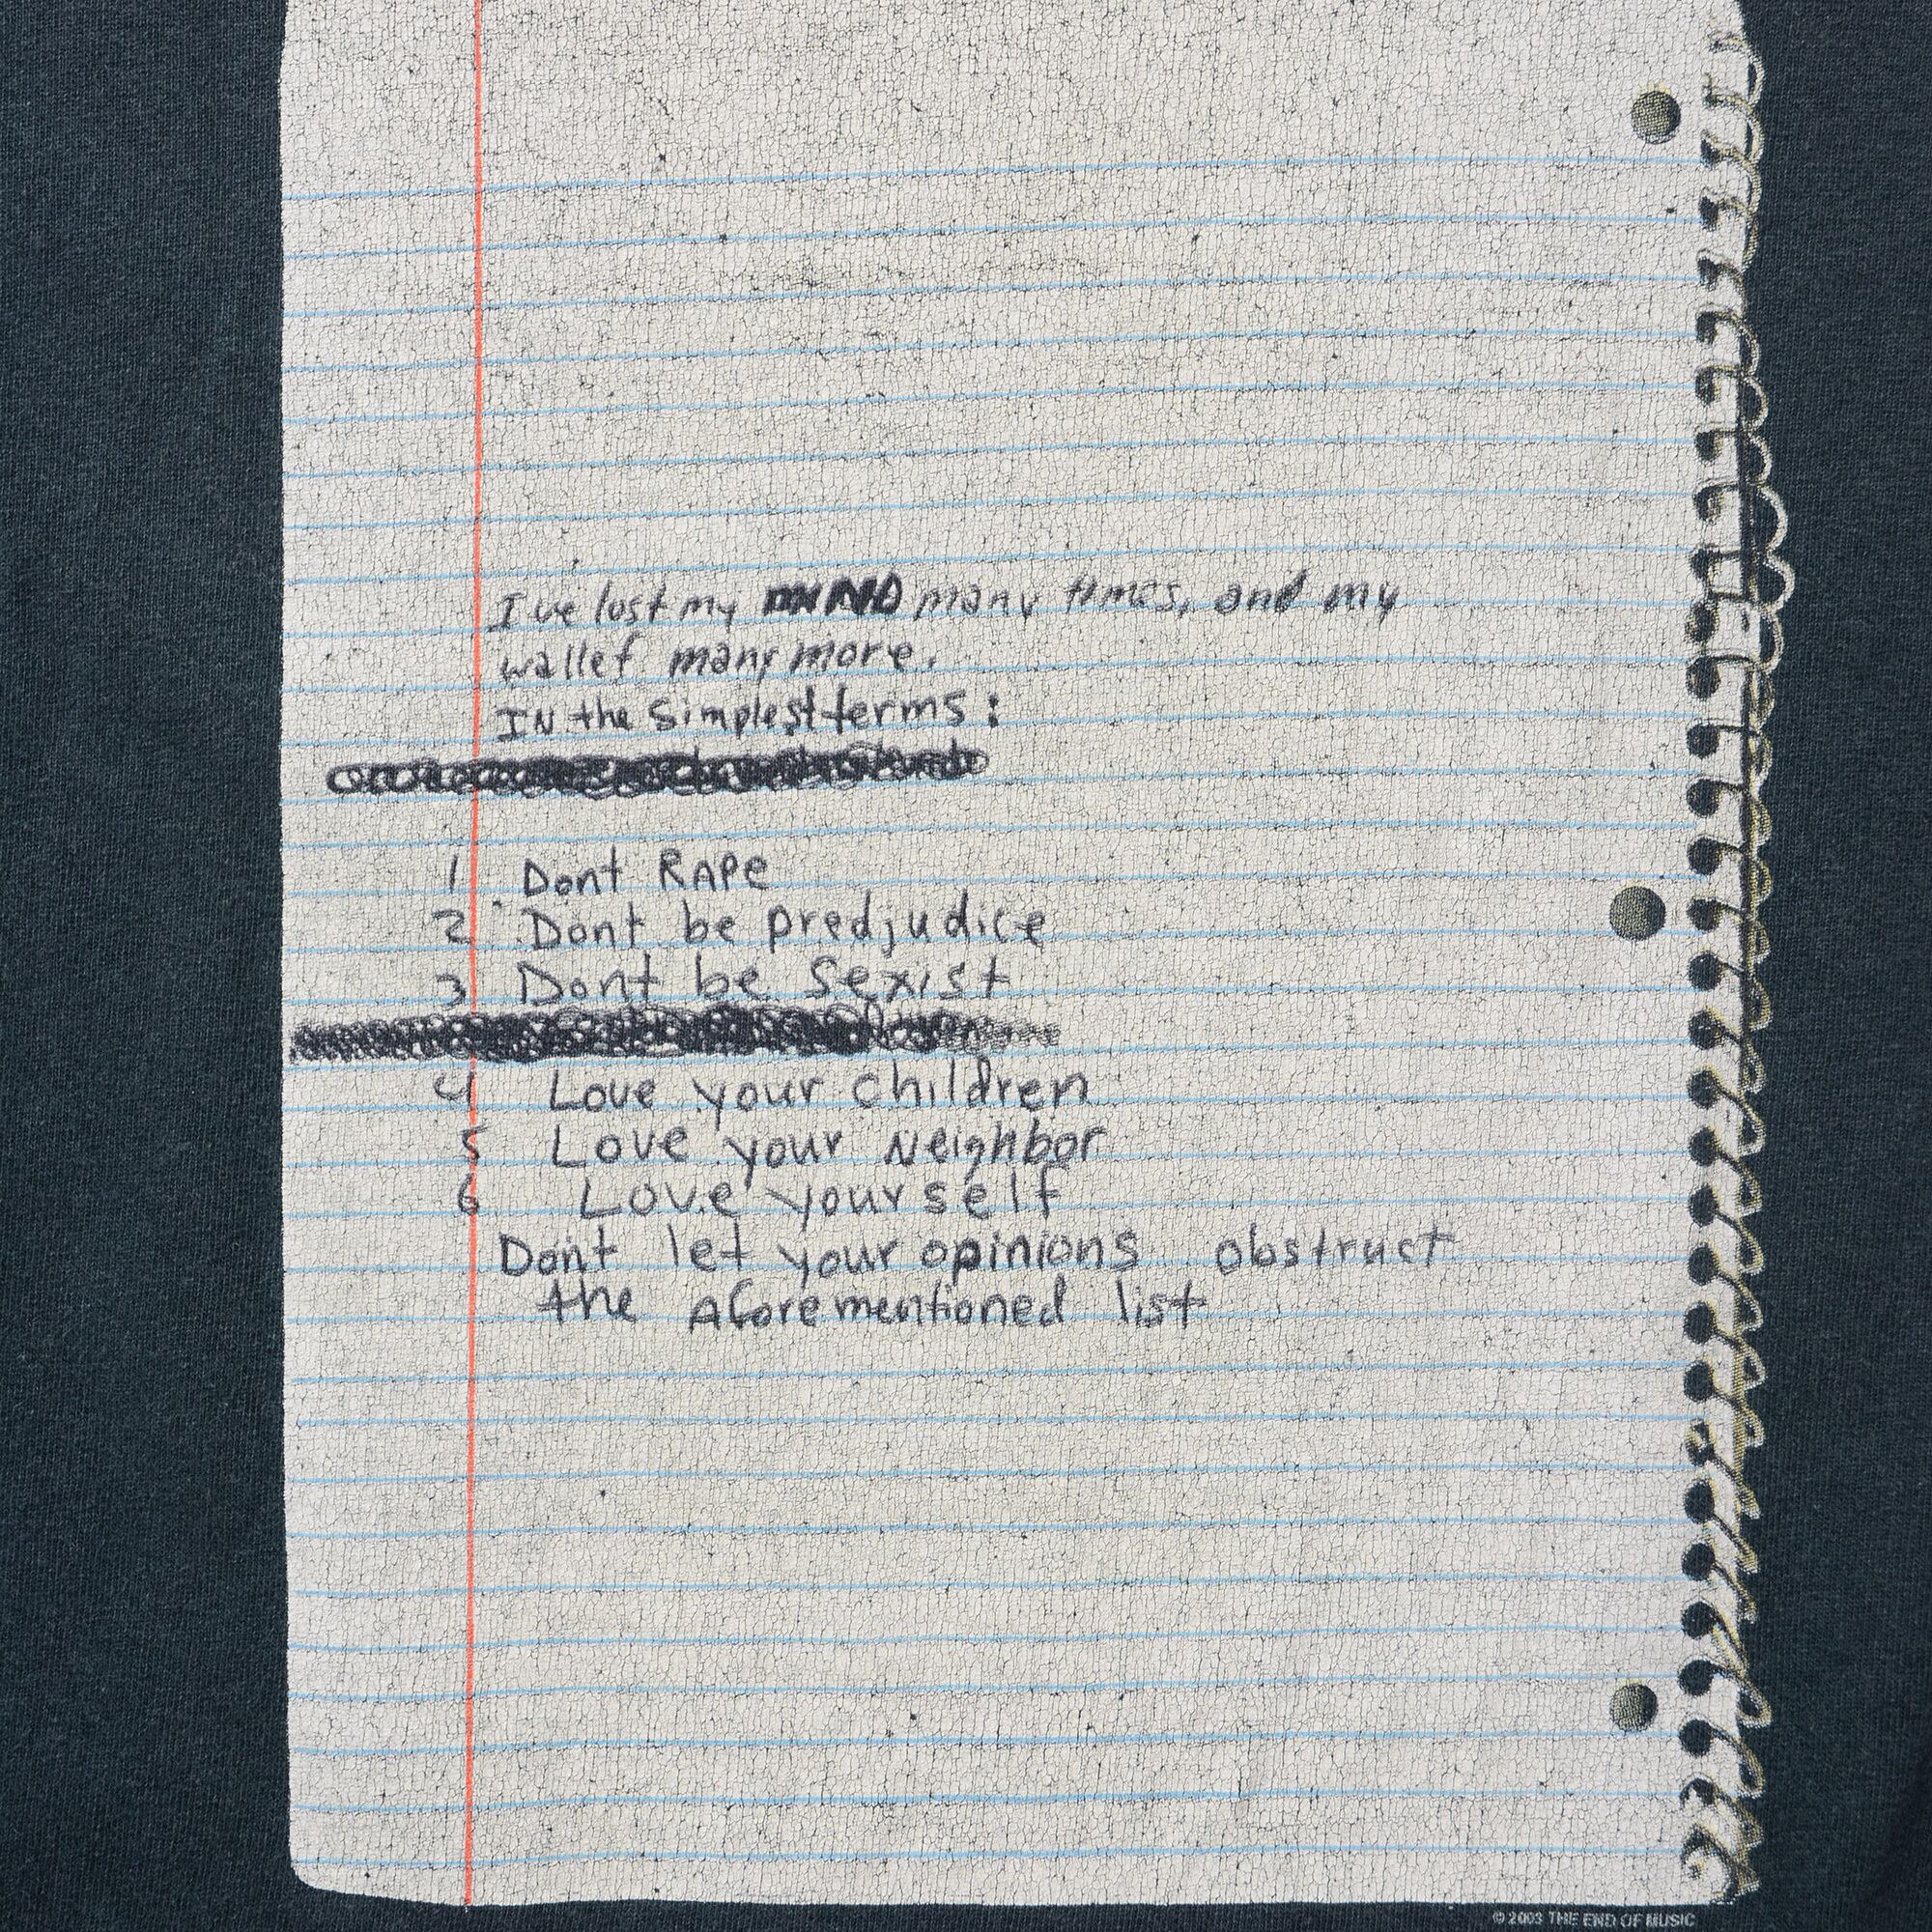 I've lost my MIND many times, and my
wallet many more.
IN the Simplest terms:
1 Dont RAPe
2 Dont be predjudice
3 Dont be Sexist
4 Love your children
5 Love your Neighbor
6 Love yourself
Don't let your opinions obstruct
the Aforementioned list
© 2003 THE END OF MUSIC